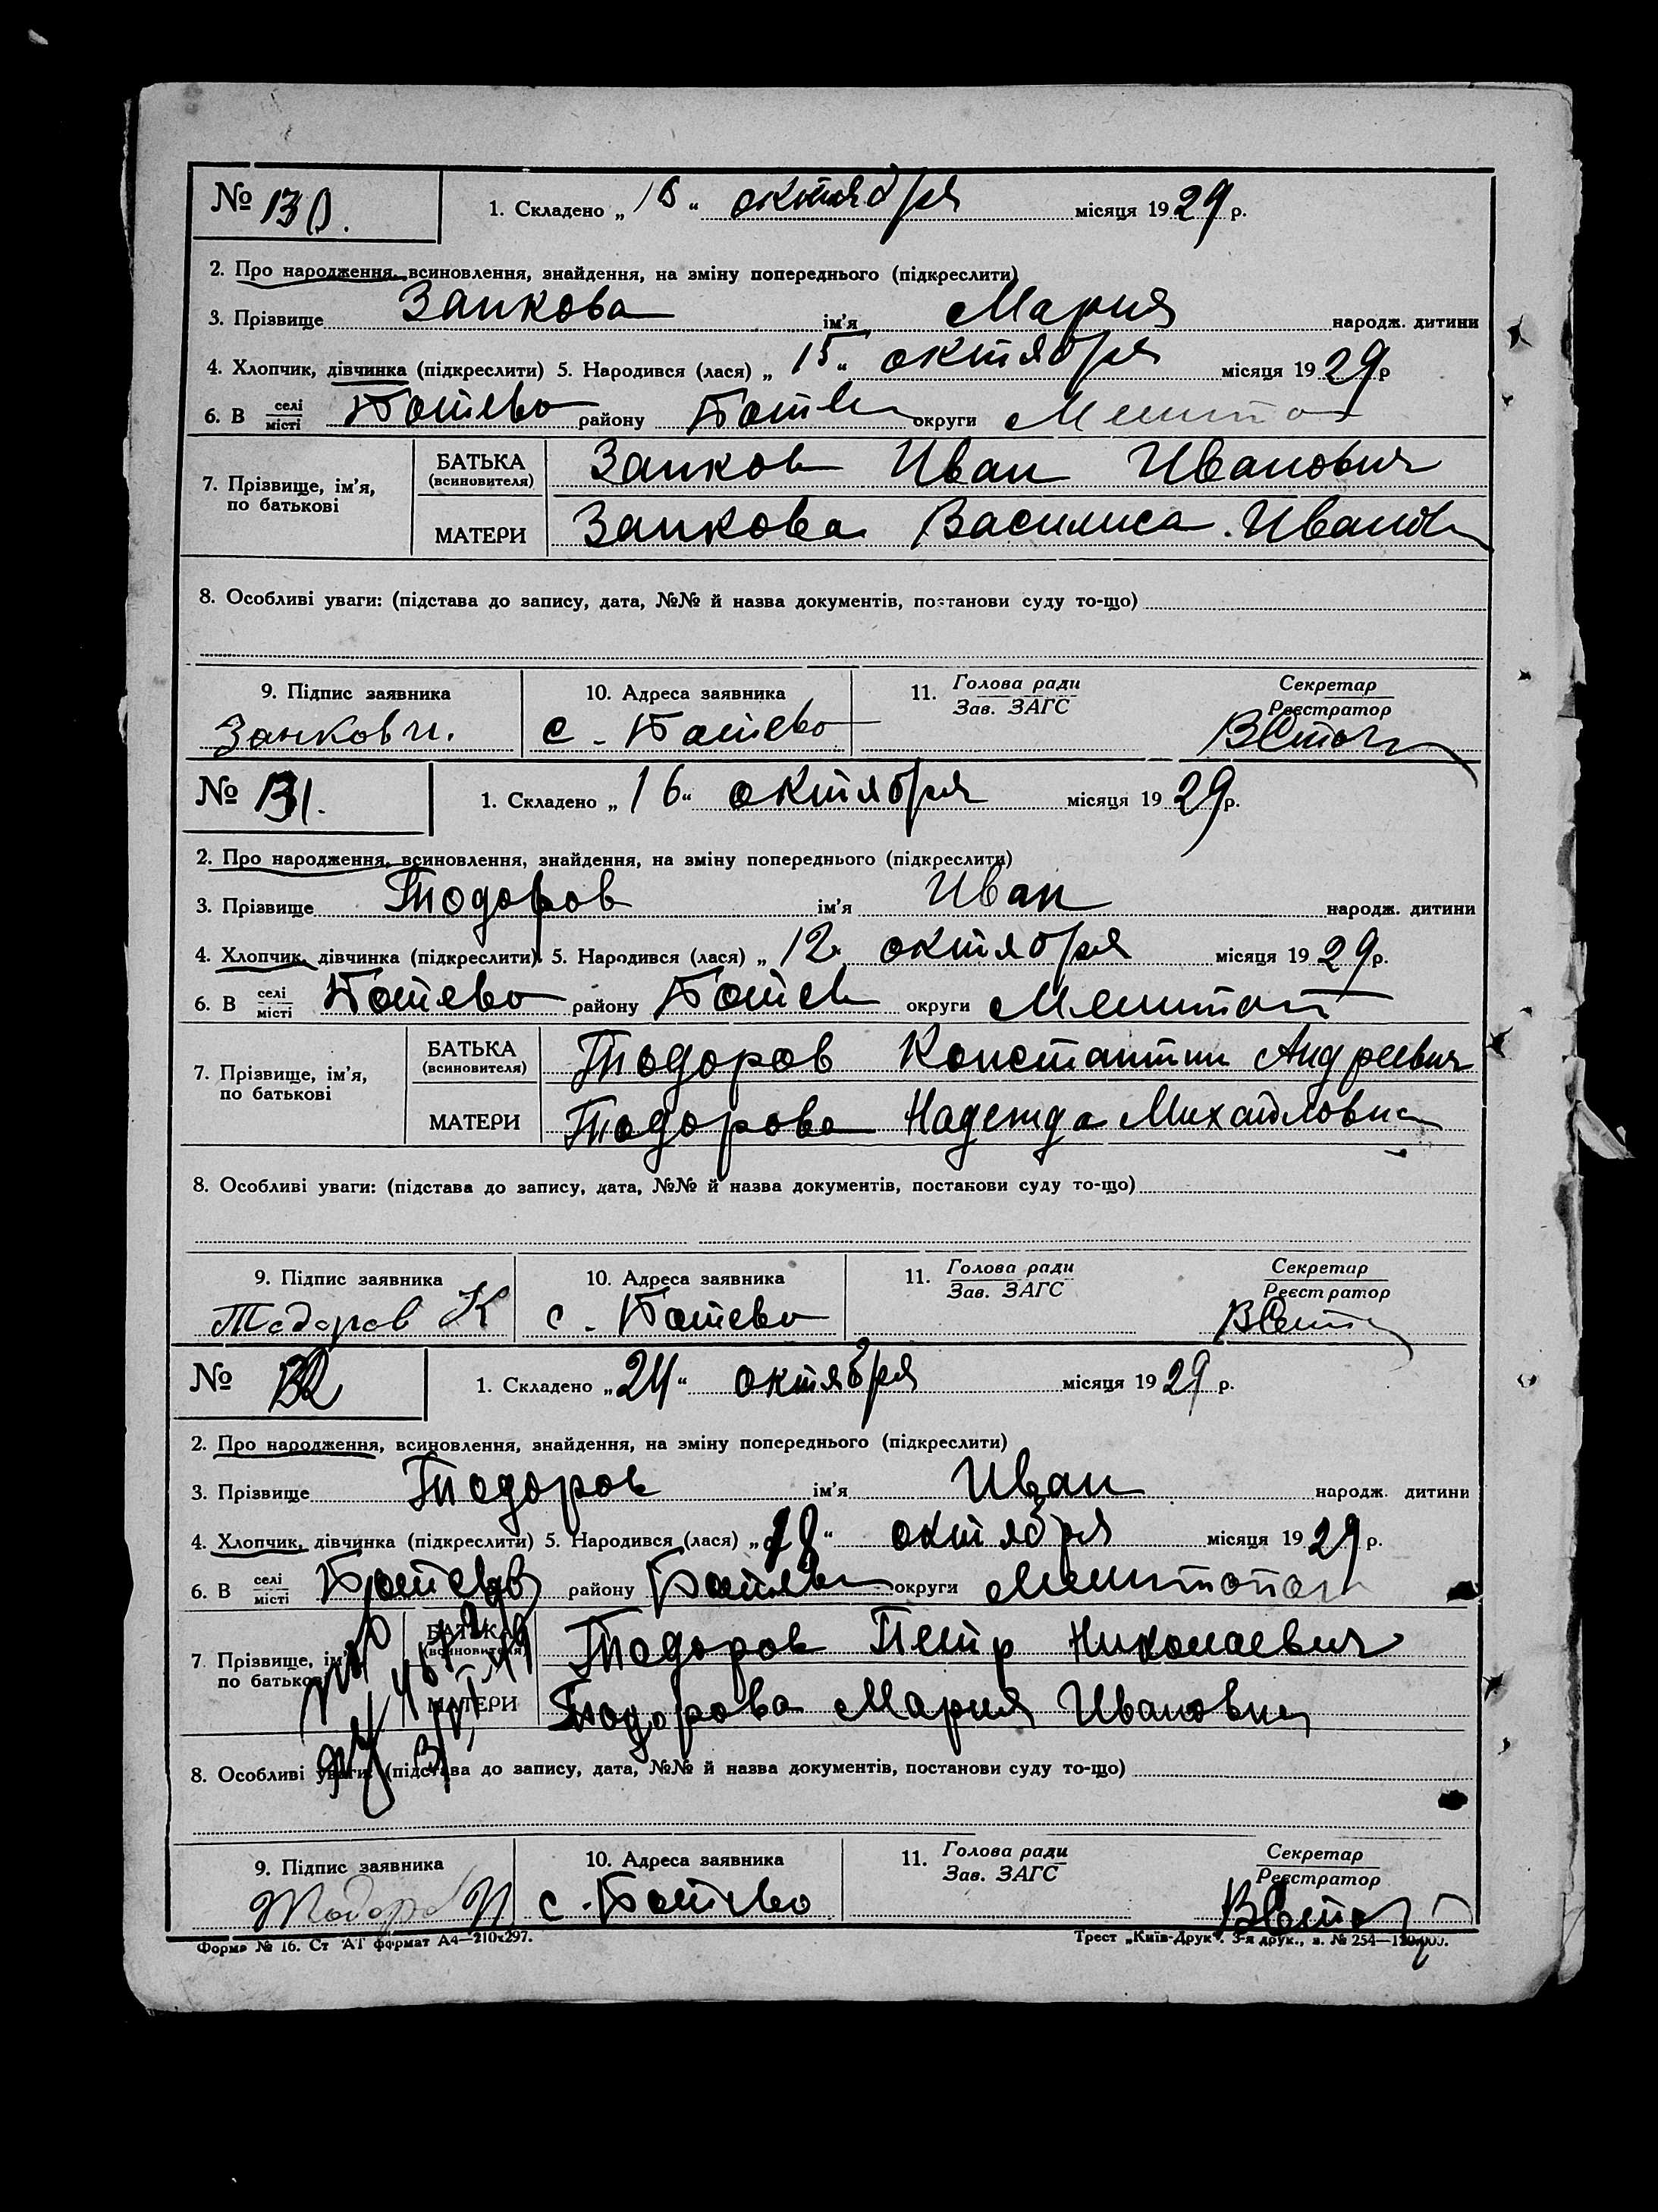 № 130. 1. Складено „16“ октября місяця 1929 р.
2. Про народження, всиновлення, знайдення, на зміну попереднього (підкреслити)
3. Прізвище Занкова ім'я Мария народж. дитини
4. Хлопчик, дівчинка (підкреслити) 5. Народився (лася) „15“ октября місяця 1929 р
6. В селі/місті Ботево району округи
7. Прізвище, ім'я, по батькові
БАТЬКА (всиновителя) Занков Иван Иванович
МАТЕРИ Занкова Василиса
8. Особливі уваги: (підстава до запису, дата, №№ й назва документів, постанови суду то-що)
9. Підпис заявника 10. Адреса заявника 11. Голова ради Секретар
Зав. ЗАГС Реєстратор
Занков И. с. Ботево
№ 131. 1. Складено „16“ октября місяця 1929 р.
2. Про народження, всиновлення, знайдення, на зміну попереднього (підкреслити)
3. Прізвище Тодоров ім'я Иван народж. дитини
4. Хлопчик, дівчинка (підкреслити) 5. Народився (лася) „12 октября місяця 1929 р.
6. В селі/місті Ботево району Ботев округи
7. Прізвище, ім'я, по батькові
БАТЬКА (всиновителя) Тодоров Константин Андреевич
МАТЕРИ Тодорова Надежда Михайловна
8. Особливі уваги: (підстава до запису, дата, №№ й назва документів, постанови суду то-що)
9. Підпис заявника 10. Адреса заявника 11. Голова ради Секретар
Зав. ЗАГС Реєстратор
Тодоров К с. Ботево
№ 132 1. Складено „24“ октября місяця 1929 р.
2. Про народження, всиновлення, знайдення, на зміну попереднього (підкреслити)
3. Прізвище Тодоров ім'я Иван народж. дитини
4. Хлопчик, дівчинка (підкреслити) 5. Народився (лася) октября місяця 1929 р.
6. В селі/місті району округи
7. Прізвище, ім'я, по батькові
БАТЬКА (всиновителя) Тодоров Петр Николаевич
МАТЕРИ Тодорова Мария Ивановна
8. Особливі уваги: (підстава до запису, дата, №№ й назва документів, постанови суду то-що)
9. Підпис заявника 10. Адреса заявника 11. Голова ради Секретар
Зав. ЗАГС Реєстратор
Тодоров П с. Ботево
Форма № 16. Ст АТ формат А4—210х297. Трест „Київ-Друк“. 3-я друк., з. № 254—